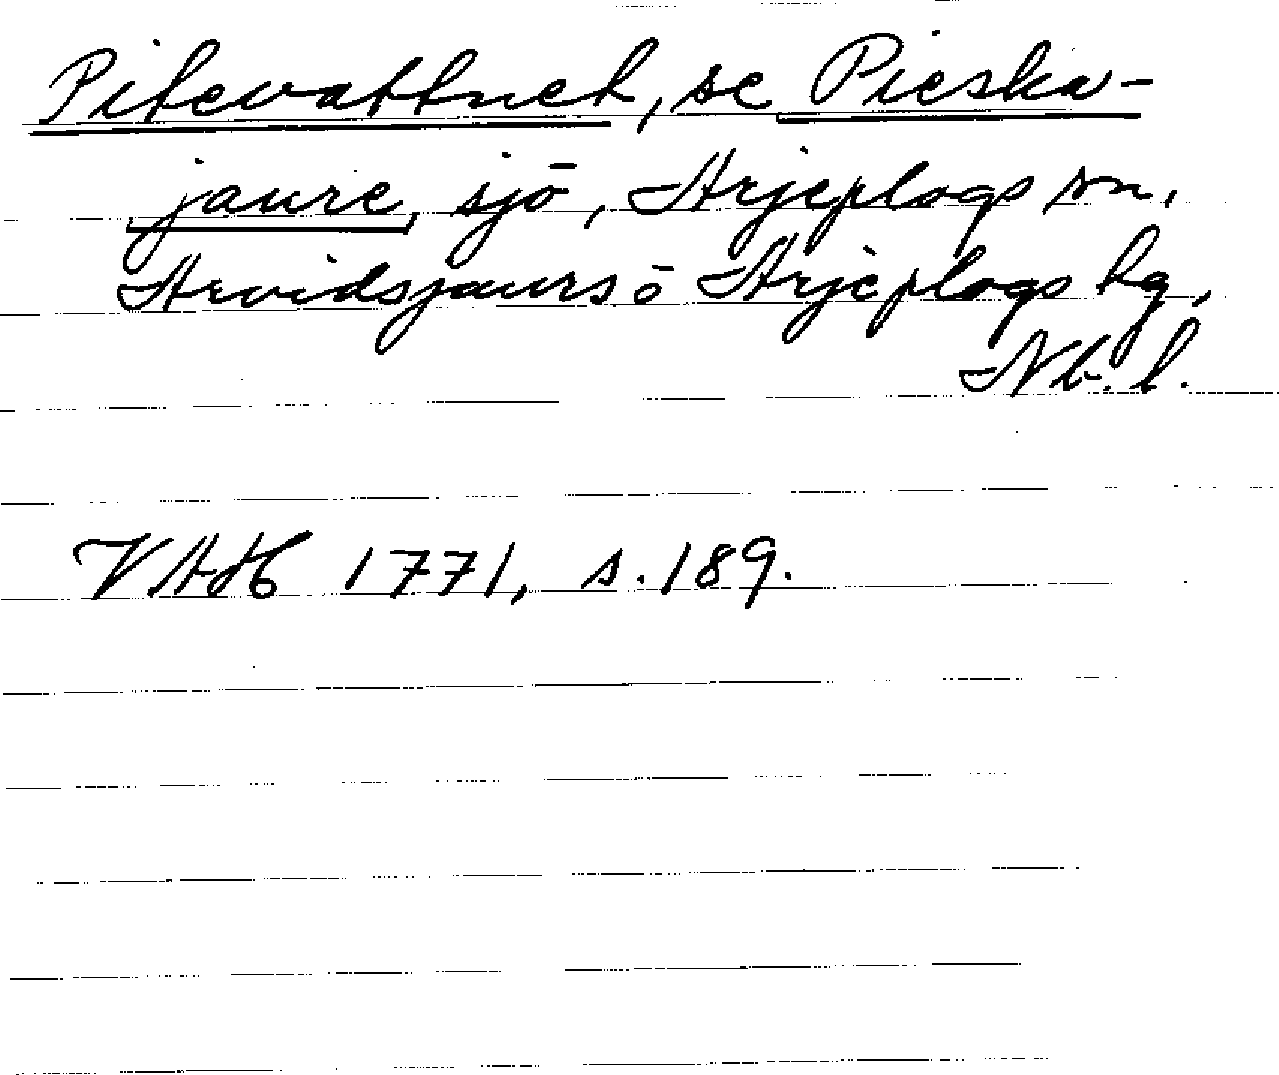 Pitevattnet, se Pieska-
jaure, sjö, Arjeplogs sn,
Arvidsjaurs o Arjeplogs hg,
Nb. l.
VAH 1771, s. 189.